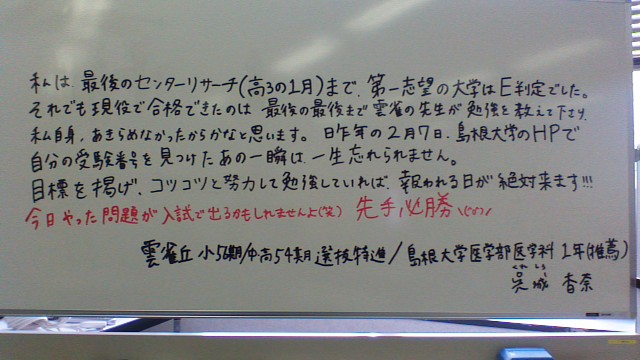 私は、最後のセンターリサーチ(高3の1月)まで、第一志望の大学はE判定でした。
それでも現役で合格できたのは 最後の最後まで雲雀の先生が勉強を教えて下さり、
私自身、あきらめなかったからかなと思います。昨年の2月7日、島根大学のHPで
自分の受験番号を見つけたあの一瞬は、一生忘れられません。
目標を掲げ、コツコツと努力して勉強していれば、報われる日が絶対来ます!!!
今日やった問題が入試で出るかもしれませんよ(笑) 先手必勝
雲雀丘 小56期/中高54期 選抜特進/島根大学医学部医学科 1年(推薦)
くれ しろ
呉城 香奈